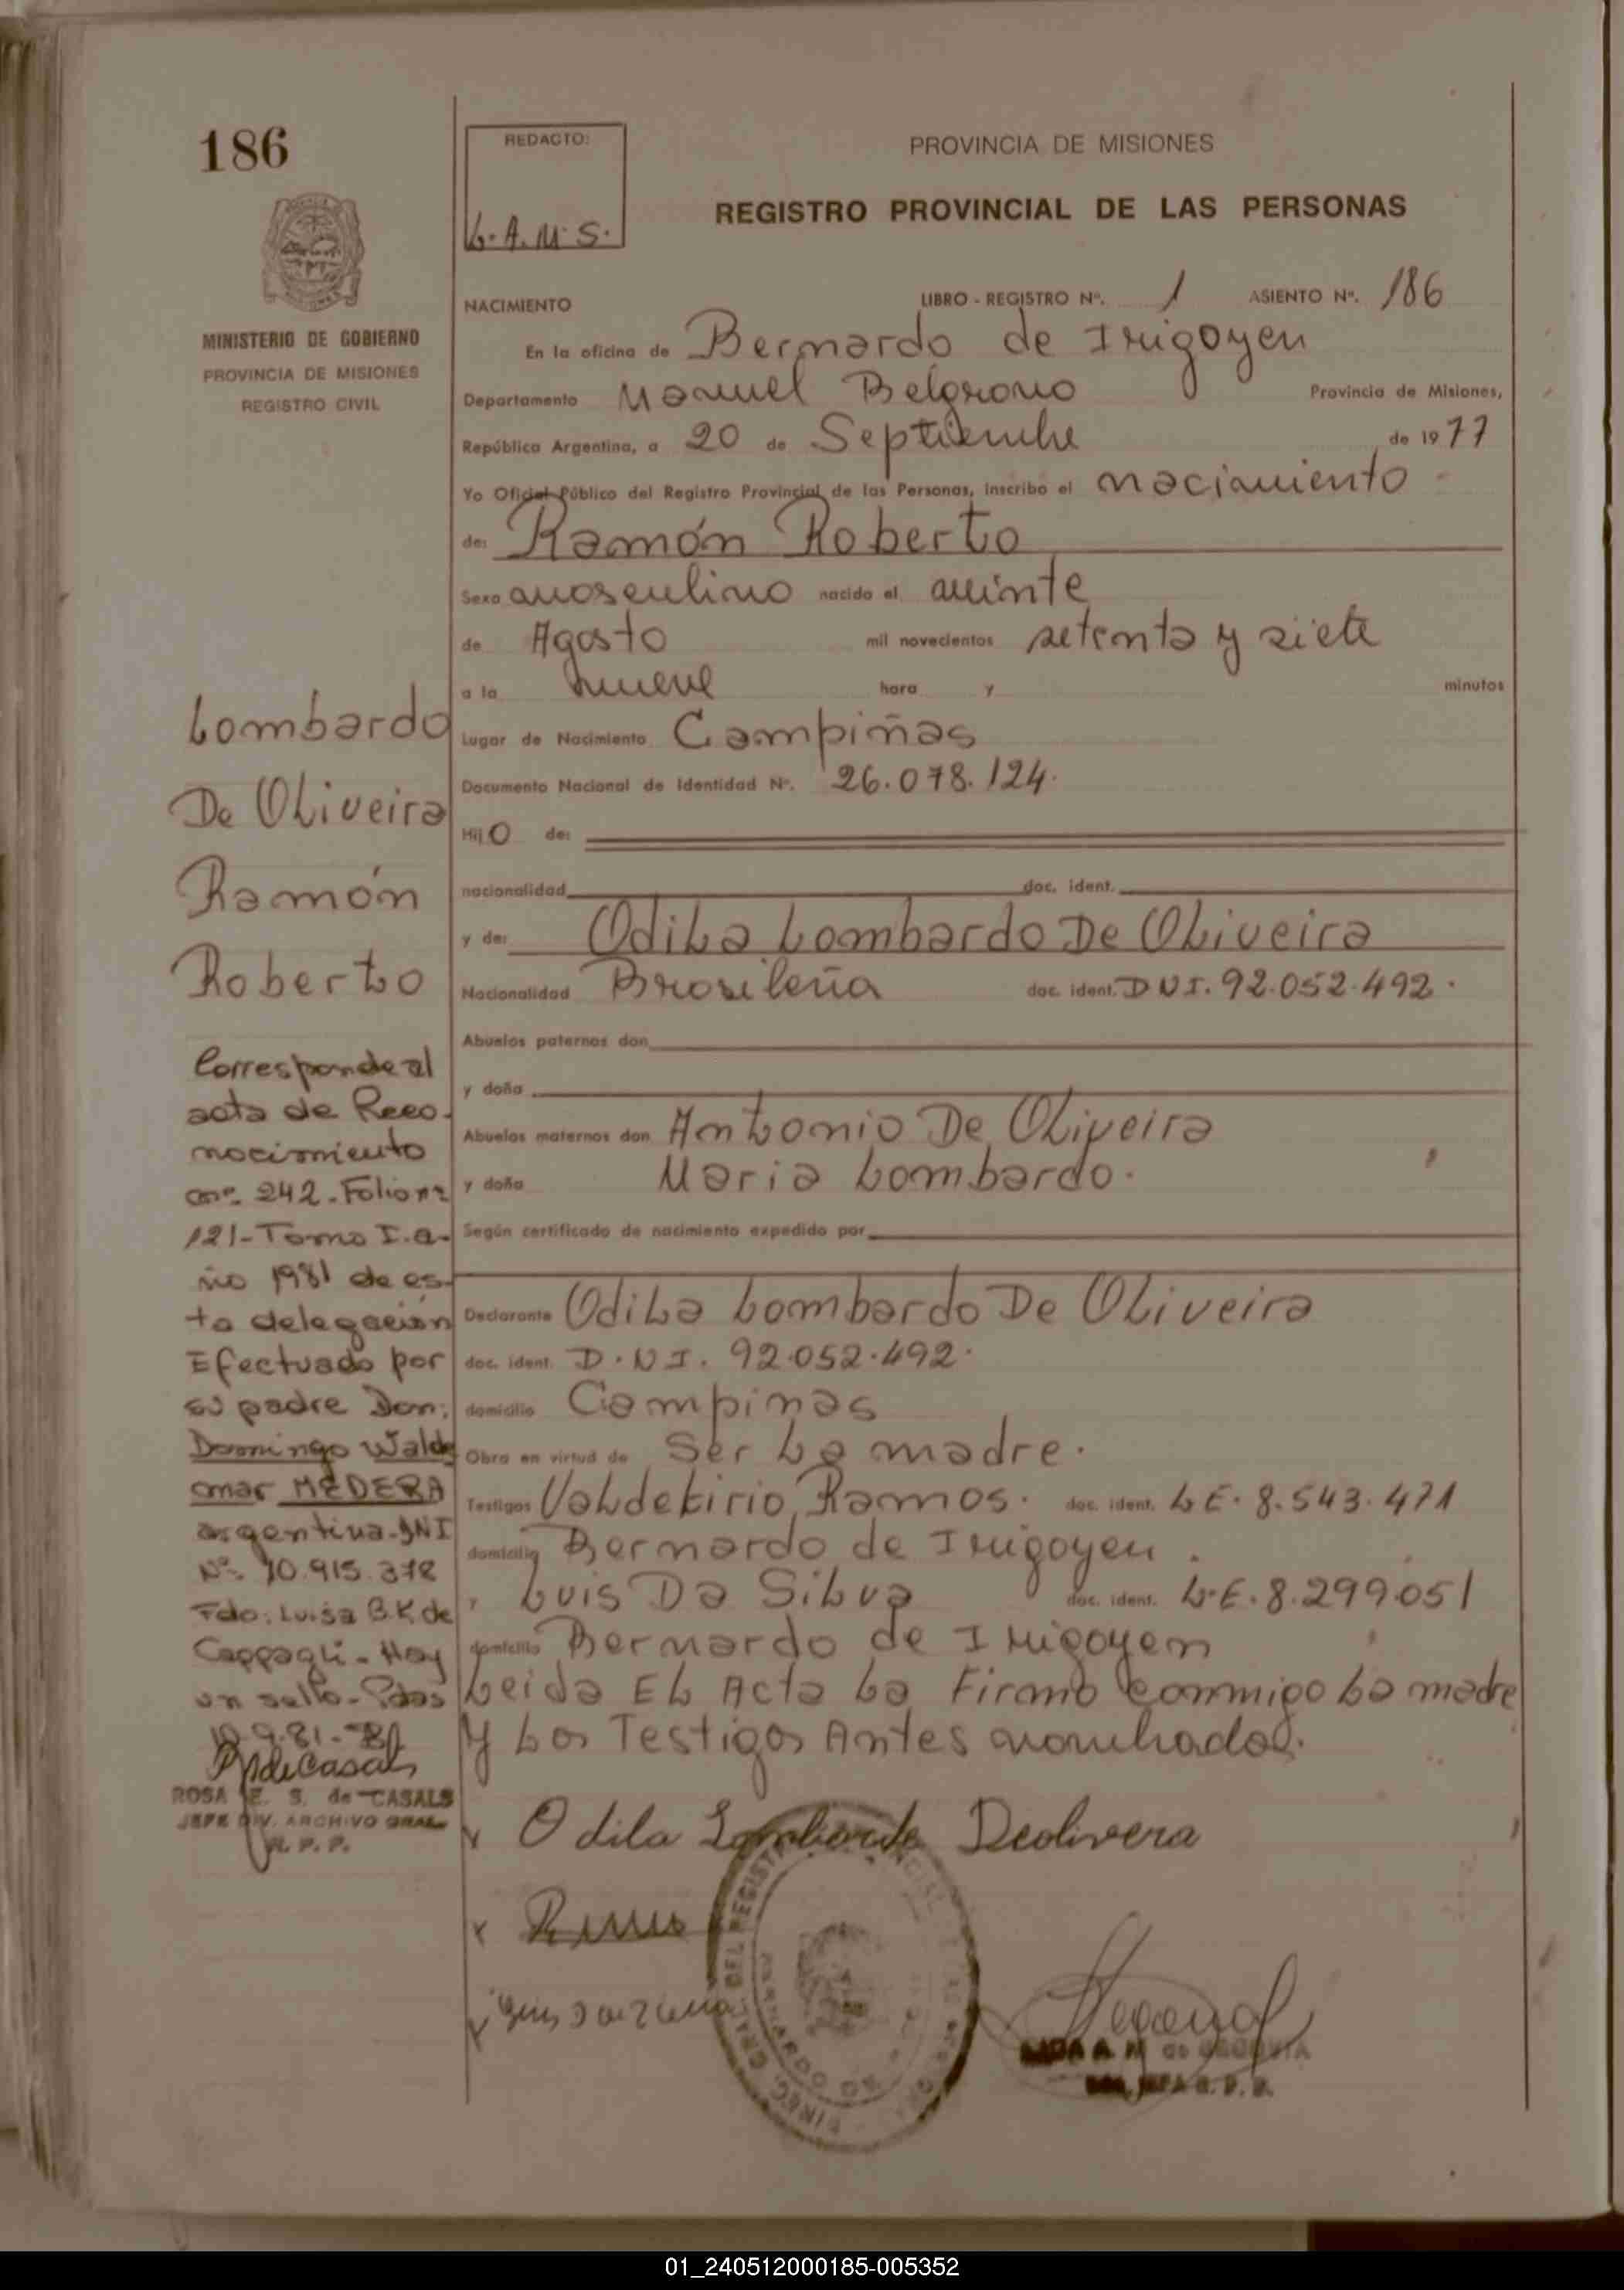 186
MINISTERIO DE GOBIERNO
PROVINCIA DE MISIONES
REGISTRO CIVIL
REDACTO:
L.A.M.S.
PROVINCIA DE MISIONES
REGISTRO PROVINCIAL DE LAS PERSONAS
NACIMIENTO LIBRO - REGISTRO Nº. 1 ASIENTO Nº. 186
En la oficina de Bernardo de Irigoyen
Departamento Manuel Belgrano Provincia de Misiones,
República Argentina, a 20 de Septiembre de 1977
Yo Oficial Público del Registro Provincial de las Personas, inscribo el nacimiento
de: Ramón Roberto
Sexo masculino nacido el
de Agosto mil novecientos setenta y siete
a la nueve hora y minutos
Lugar de Nacimiento Campiñas
Documento Nacional de Identidad Nº. 26.078.124.
Hijo de:
nacionalidad doc. ident.
y de: Odila Lombardo De Oliveira
Nacionalidad Brasileña doc. ident. DNI. 92.052.492.
Abuelos paternos don
y doña
Abuelos maternos don Antonio De Oliveira
y doña Maria Lombardo.
Según certificado de nacimiento expedido por
Declarante Odila Lombardo De Oliveira
doc. ident. D.N.I. 92.052.492.
domicilio Campinas
Obra en virtud de Ser La madre.
Testigos Valdekirio Ramos. doc. ident. L E. 8.543.471
domicilio Bernardo de Irigoyen.
y Luis Da Silva doc. ident. L.E. 8.299.051
domicilio Bernardo de Irigoyen
Leida El Acta La Firmo conmigo La madre
y Los Testigos Antes nombrados.
Lombardo
De Oliveira
Ramón
Roberto
Corresponde al
acta de Reco-
nocimiento
nº. 242-Folio nº
121-Tomo I.a-
ño 1981 de es-
ta delegación
Efectuado por
su padre Don:
Domingo Walde
mar MEDERA
argentina-DNI
Nº. 10.915.378
Fdo: Luisa B.K. de
Cappagli-Hay
un sello-Pdas
10.9.81-
R de Casals
ROSA E. S. de CASALS
JEFE DIV. ARCHIVO GRAL.
R. P. P.
Odila Lombardo Deolivera
01_240512000185-005352